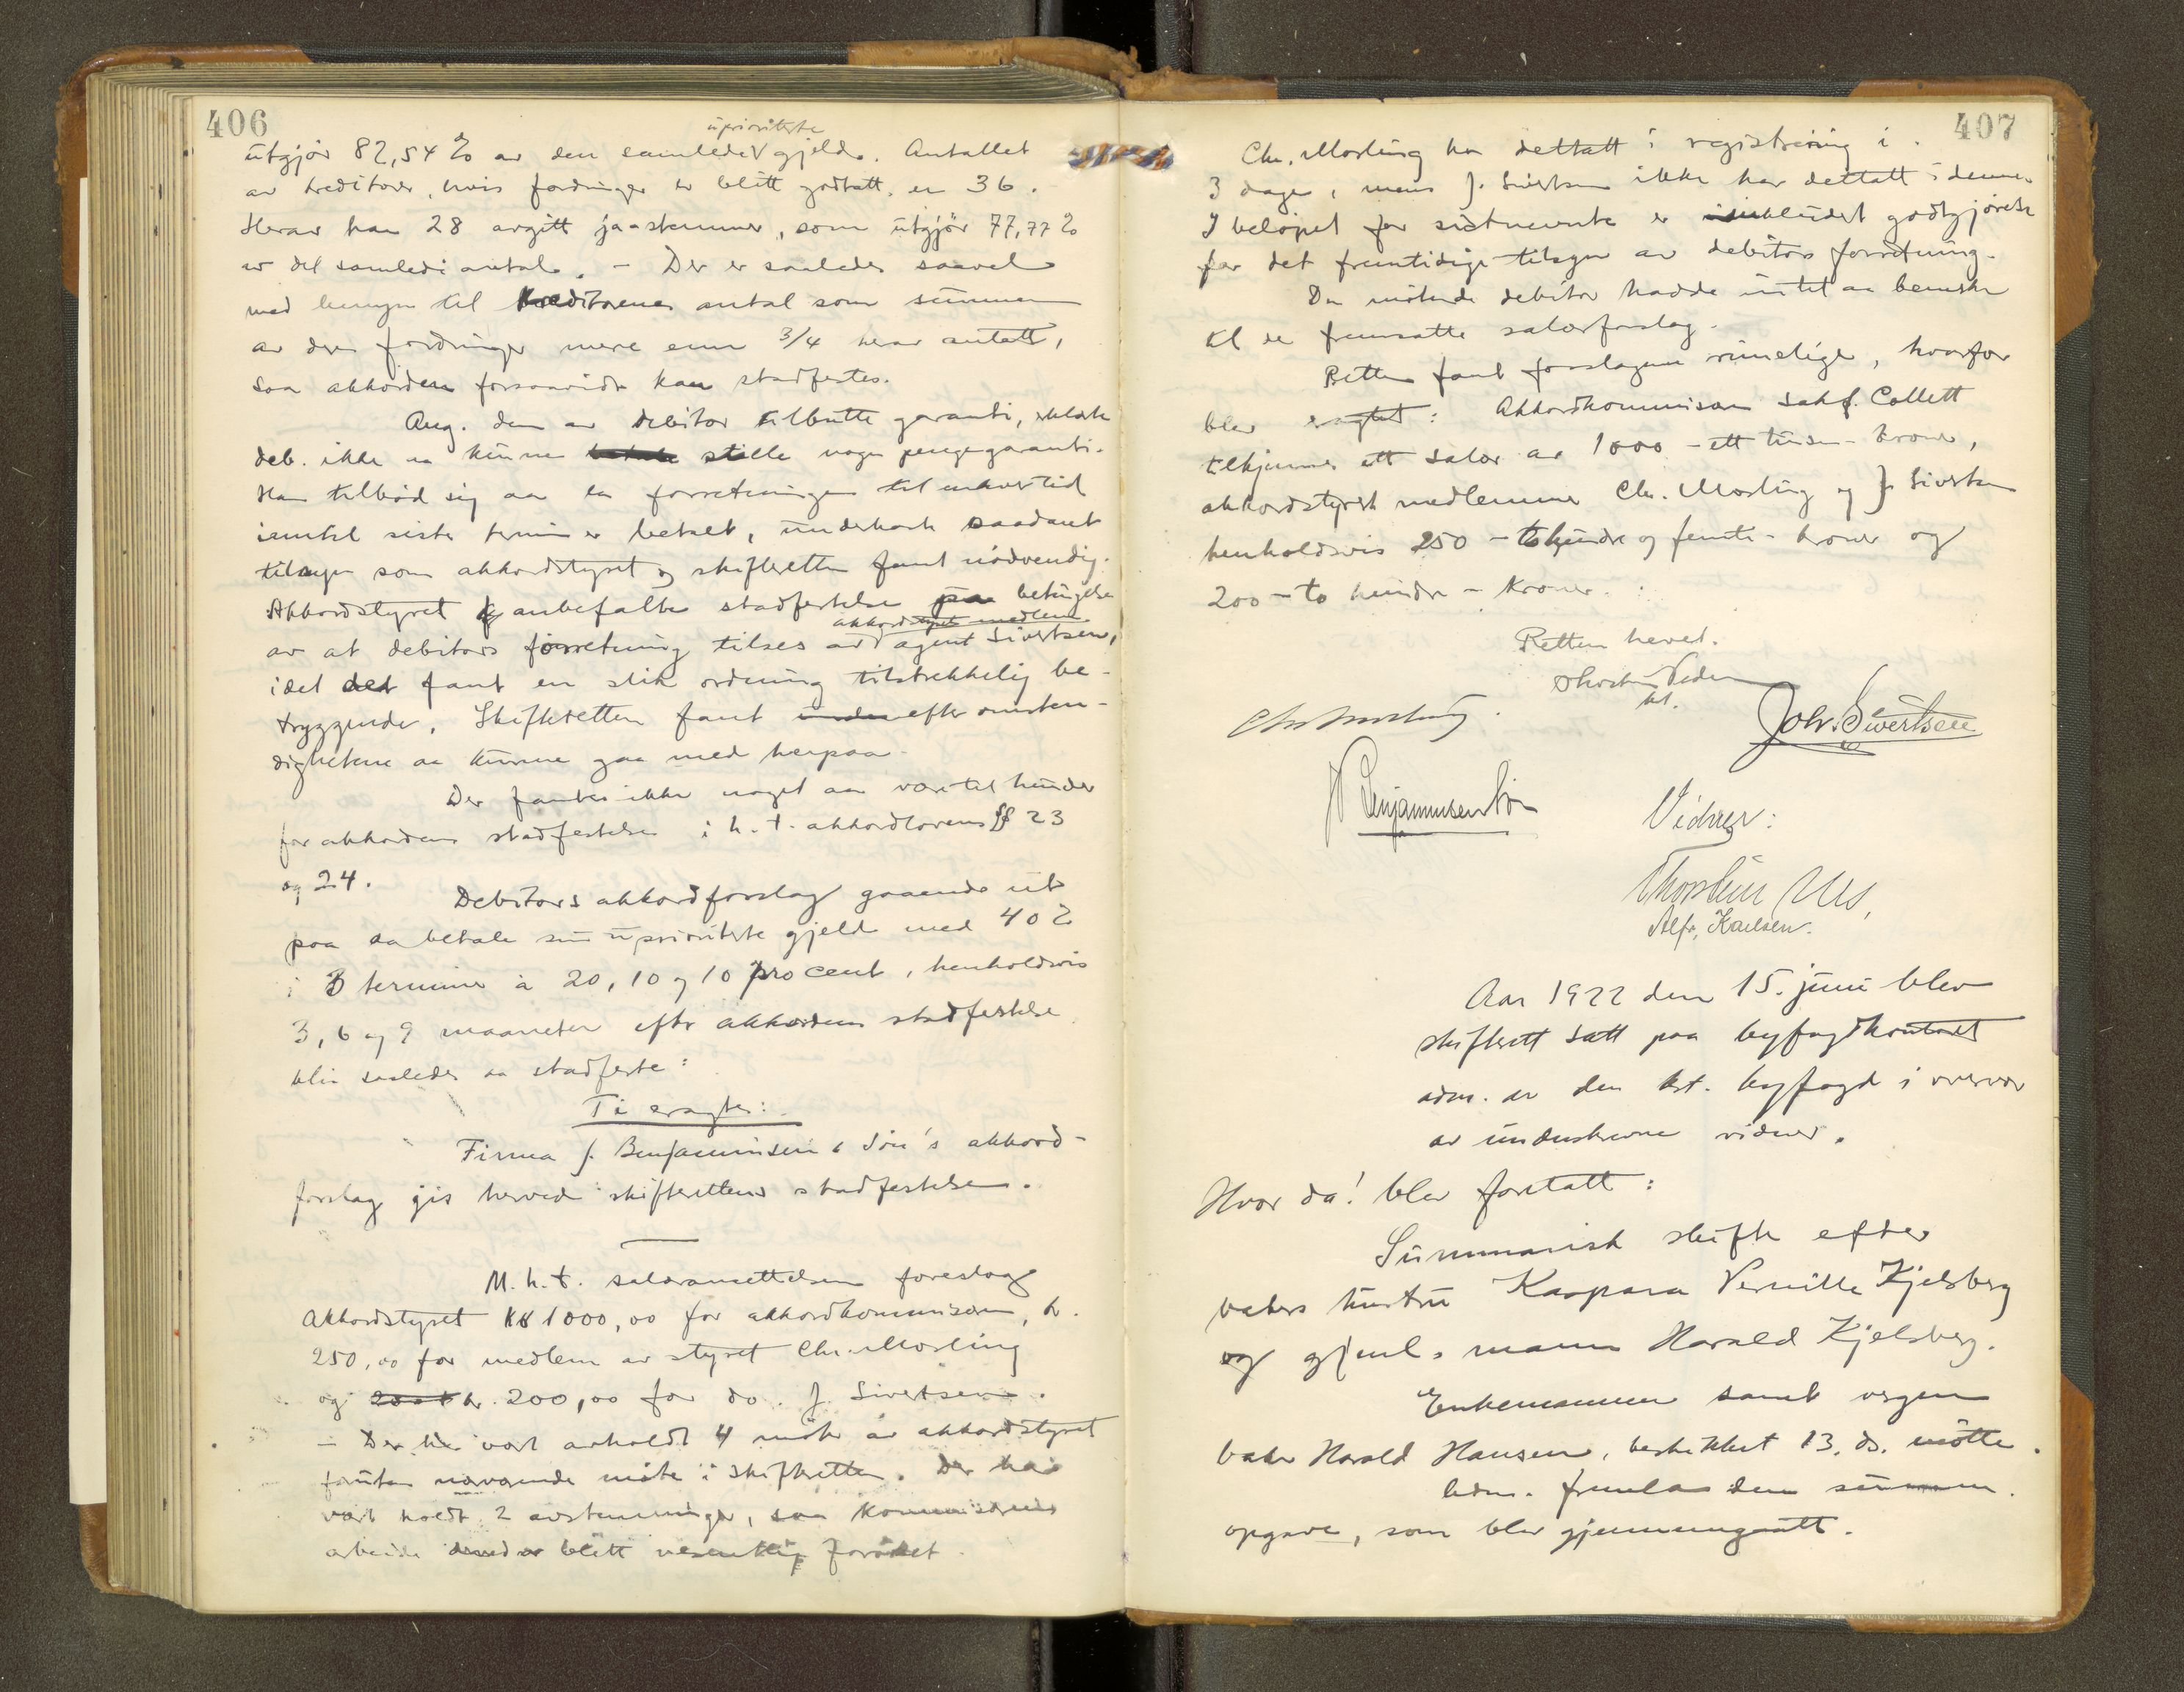 406
uprioriterte
utgjør 82,54 % av den samlede gjeld. Antallet
av kreditorer, hvis fordringer er blitt godtatt, er 36.
Herav har 28 avgitt ja-stemmer, som utgjør 77,77 %
av det samlede antal. - Der er saaledes saavel
med hensyn til kreditorenes antal som summen
av deres fordringer mere enn 3/4 herav antatt,
saa akkorden forsaavidt kan stadfestes.
Ang. den av debitor tilbutte garanti, erklærte
deb. ikke aa kunne stille nogen pengegaranti.
Han tilbød sig aa la forretningen til enhver tid
inntil siste termin er betalt, underkaste saadant
tilsyn som akkordstyret og skifteretten fant nødvendig.
Akkordstyret anbefalte stadfestelse paa betingelse
akkordstyrets medlem
av at debitors forretning tilses av agent Sivertsen,
idet det fant en slik ordning tilstrekkelig be-
tryggende. Skifteretten fant efter omsten-
dighetene aa kunne gaa med herpaa.
Der fantes ikke noget aa være til hinder
for akkordens stadfestelse i h. t. akkordlovens §§ 23
og 24.
Debitors akkordforslag gaaende ut
paa aa betale sin uprioriterte gjeld med 40 %
i 3 terminer à 20, 10 og 10 procent, henholdsvis
3, 6 og 9 maaneter efter akkordens stadfestelse
blir saaledes aa stadfeste:
Ti eragtes:
Firma J. Benjaminsen & Søn's akkord-
forslag gis herved skifterettens stadfestelse.
M. h. t. salæransettelsen foreslog
Akkordstyret kr 1000,00 for akkordkommissæren, kr.
250,00 for medlem av styret Chr. Mosling
og kr. 200,00 for do. J. Sivertsen.
- Der har vært avholdt 4 møter av akkordstyret
foruten nærværende møte i skifteretten. Der har
vært holdt 2 avstemninger, saa kommissærens
arbeide derved er blitt vesentlig forøket.
407
Chr. Mosling har deltatt i registrering i
3 dager, mens J. Sivertsen ikke har deltatt i denne.
I beløpet for sistnevnte er inkludert godtgjørelse
for det fremtidige tilsyn av debitors forretning.
Den møtende debitor hadde intet aa bemerke
til de fremsatte salærforslag.
Retten fant forslagene rimelige, hvorfor
blev eragtet: Akkordkommissæren sakf. Collett
tilkjennes ett salær av 1000 - ett tusen - kroner,
akkordstyrets medlemmer Chr. Mosling og J. Sivertsen
henholdsvis 250 - tohundre og femti - kroner og
200 - to hundre - kroner.
Retten hevet.
kst.
Chr Mosling.
Joh. Sivertsen
Benjaminsen Søn
Vidner:
Thorstein
Alfr. Karlsen.
Aar 1922 den 15. juni blev
skifterett satt paa byfogdkontoret
adm. av den kst. byfogd i overvær
av underskrevne vidner.
Hvor da! blev foretatt:
Summarisk skifte efter
bakers hustru Kaspara Pernille Kjelsberg
og gjenl. mann Harald Kjelsberg.
Enkemannen samt vergen
baker Harald Hansen, beskikket 13. ds. møtte.
Adm. fremla den summ.
opgave, som blev gjennemgaatt.